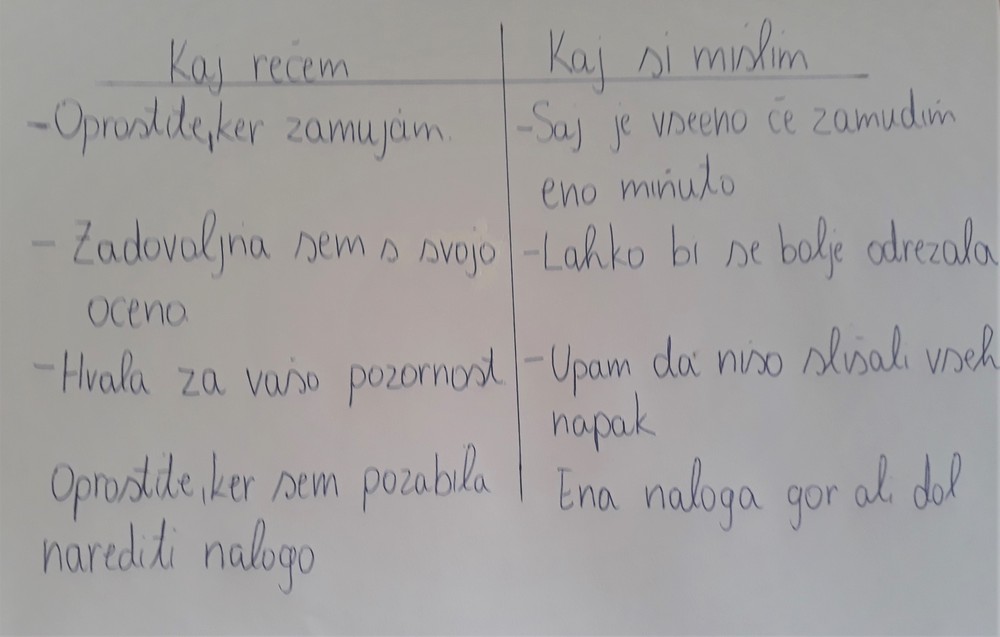 Kaj rečem
Kaj si mislim
-Oprostite, ker zamujam.
-Saj je vseeno če zamudim
eno minuto
- Zadovoljna sem s svojo
oceno
-Lahko bi se bolje odrezala
-Hvala za vašo pozornost
-Upam da niso slišali vseh
napak
Oprostite, ker sem pozabila
narediti nalogo
Ena naloga gor ali dol